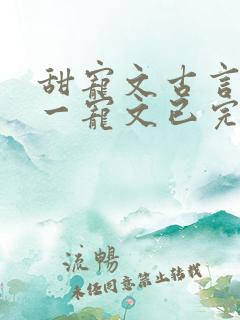 甜寵文古言
一寵文已完
流暢
未经同意禁止转载